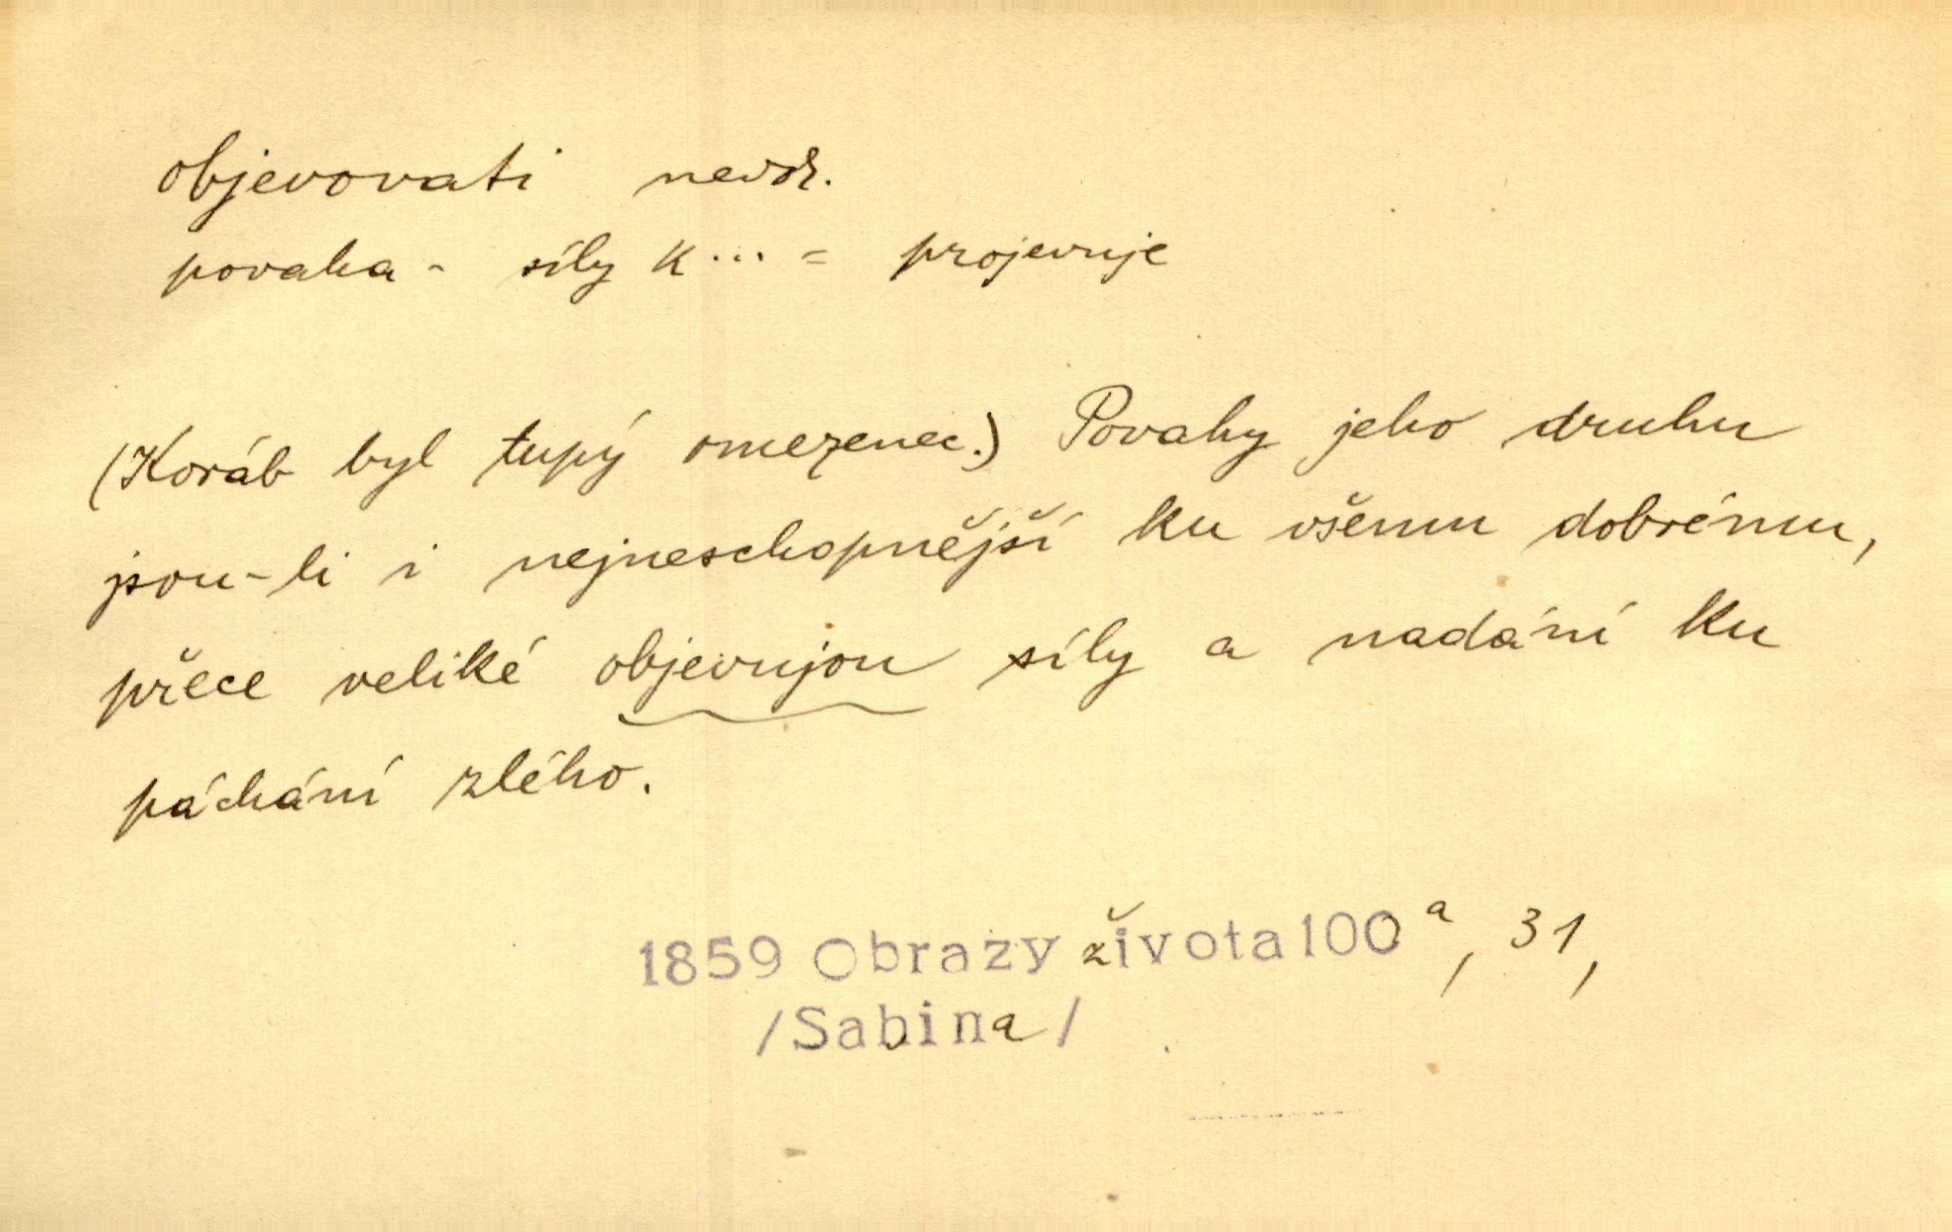 objevovati nedok.
povaha - síly k ... = projevuje
(Koráb byl tupý omezenec.) Povahy jeho druhu
jsou-li i nejneschopnější ku všemu dobrému,
přece veliké objevujou síly a nadání ku
páchání zlého.
1859 Obrazy života 100 a, 31,
/Sabina/